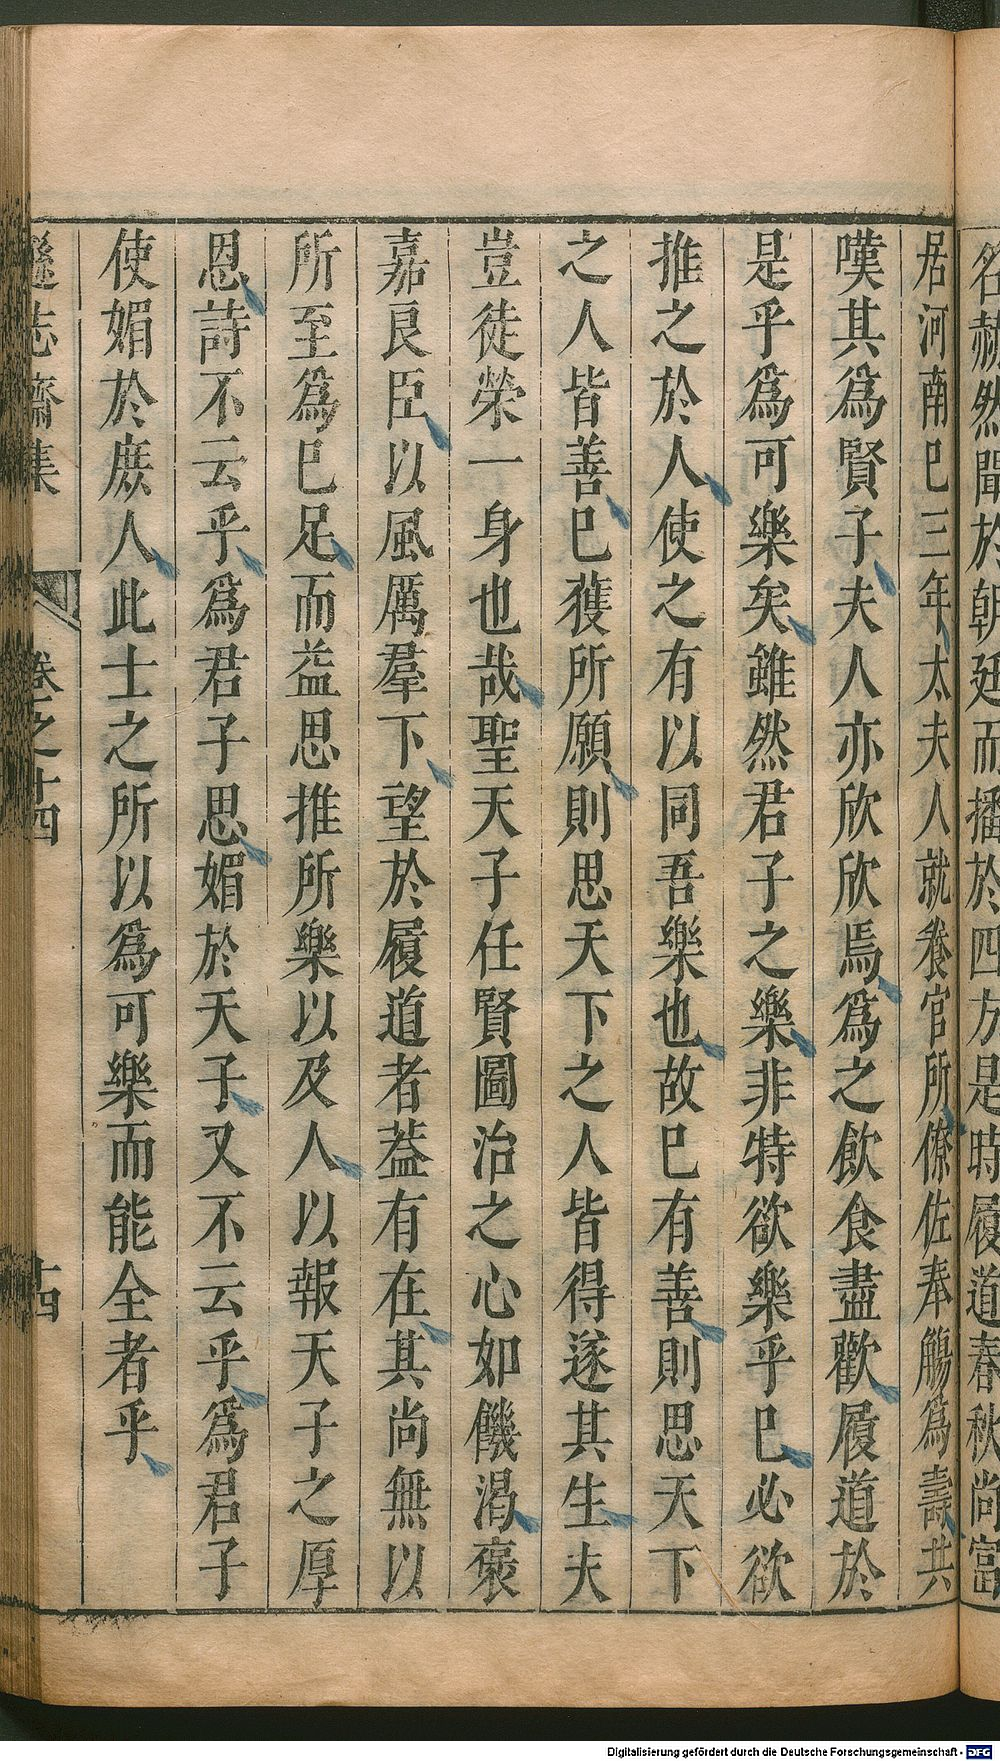 名赫然聞於朝廷而播於四方是時履道春秋尚富
居河南巳三年太夫人就養官所僚佐奉觴爲壽共
嘆其爲賢子夫人亦欣欣焉爲之飲食盡歡履道於
是乎爲可樂矣雖然君子之樂非特欲樂乎巳必欲
推之於人使之有以同吾樂也故巳有善則思天下
之人皆善巳獲所願則思天下之人皆得遂其生夫
豈徒榮一身也哉聖天子任賢圖治之心如饑渴褒
嘉良臣以風厲羣下望於履道者葢有在其尚無以
所至爲巳足而益思推所樂以及人以報天子之厚
恩詩不云乎爲君子思媚於天子又不云乎爲君子
使媚於庶人此士之所以爲可樂而能全者乎
遜志齋集
卷之十四
十四
Digitalisierung gefördert durch die Deutsche Forschungsgemeinschaft - DFG